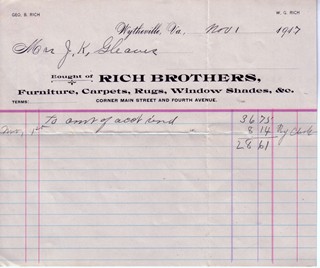 GEO. B. RICH
W. G. RICH
Wytheville, Va., Nov 1 1917
Mrs J. K. Gleaves
Bought of RICH BROTHERS,
Furniture, Carpets, Rugs, Window Shades, &c.
TERMS: CORNER MAIN STREET AND FOURTH AVENUE.
To amt of acct rend 36 75
Nov 1st 8 14 By Check
28 61